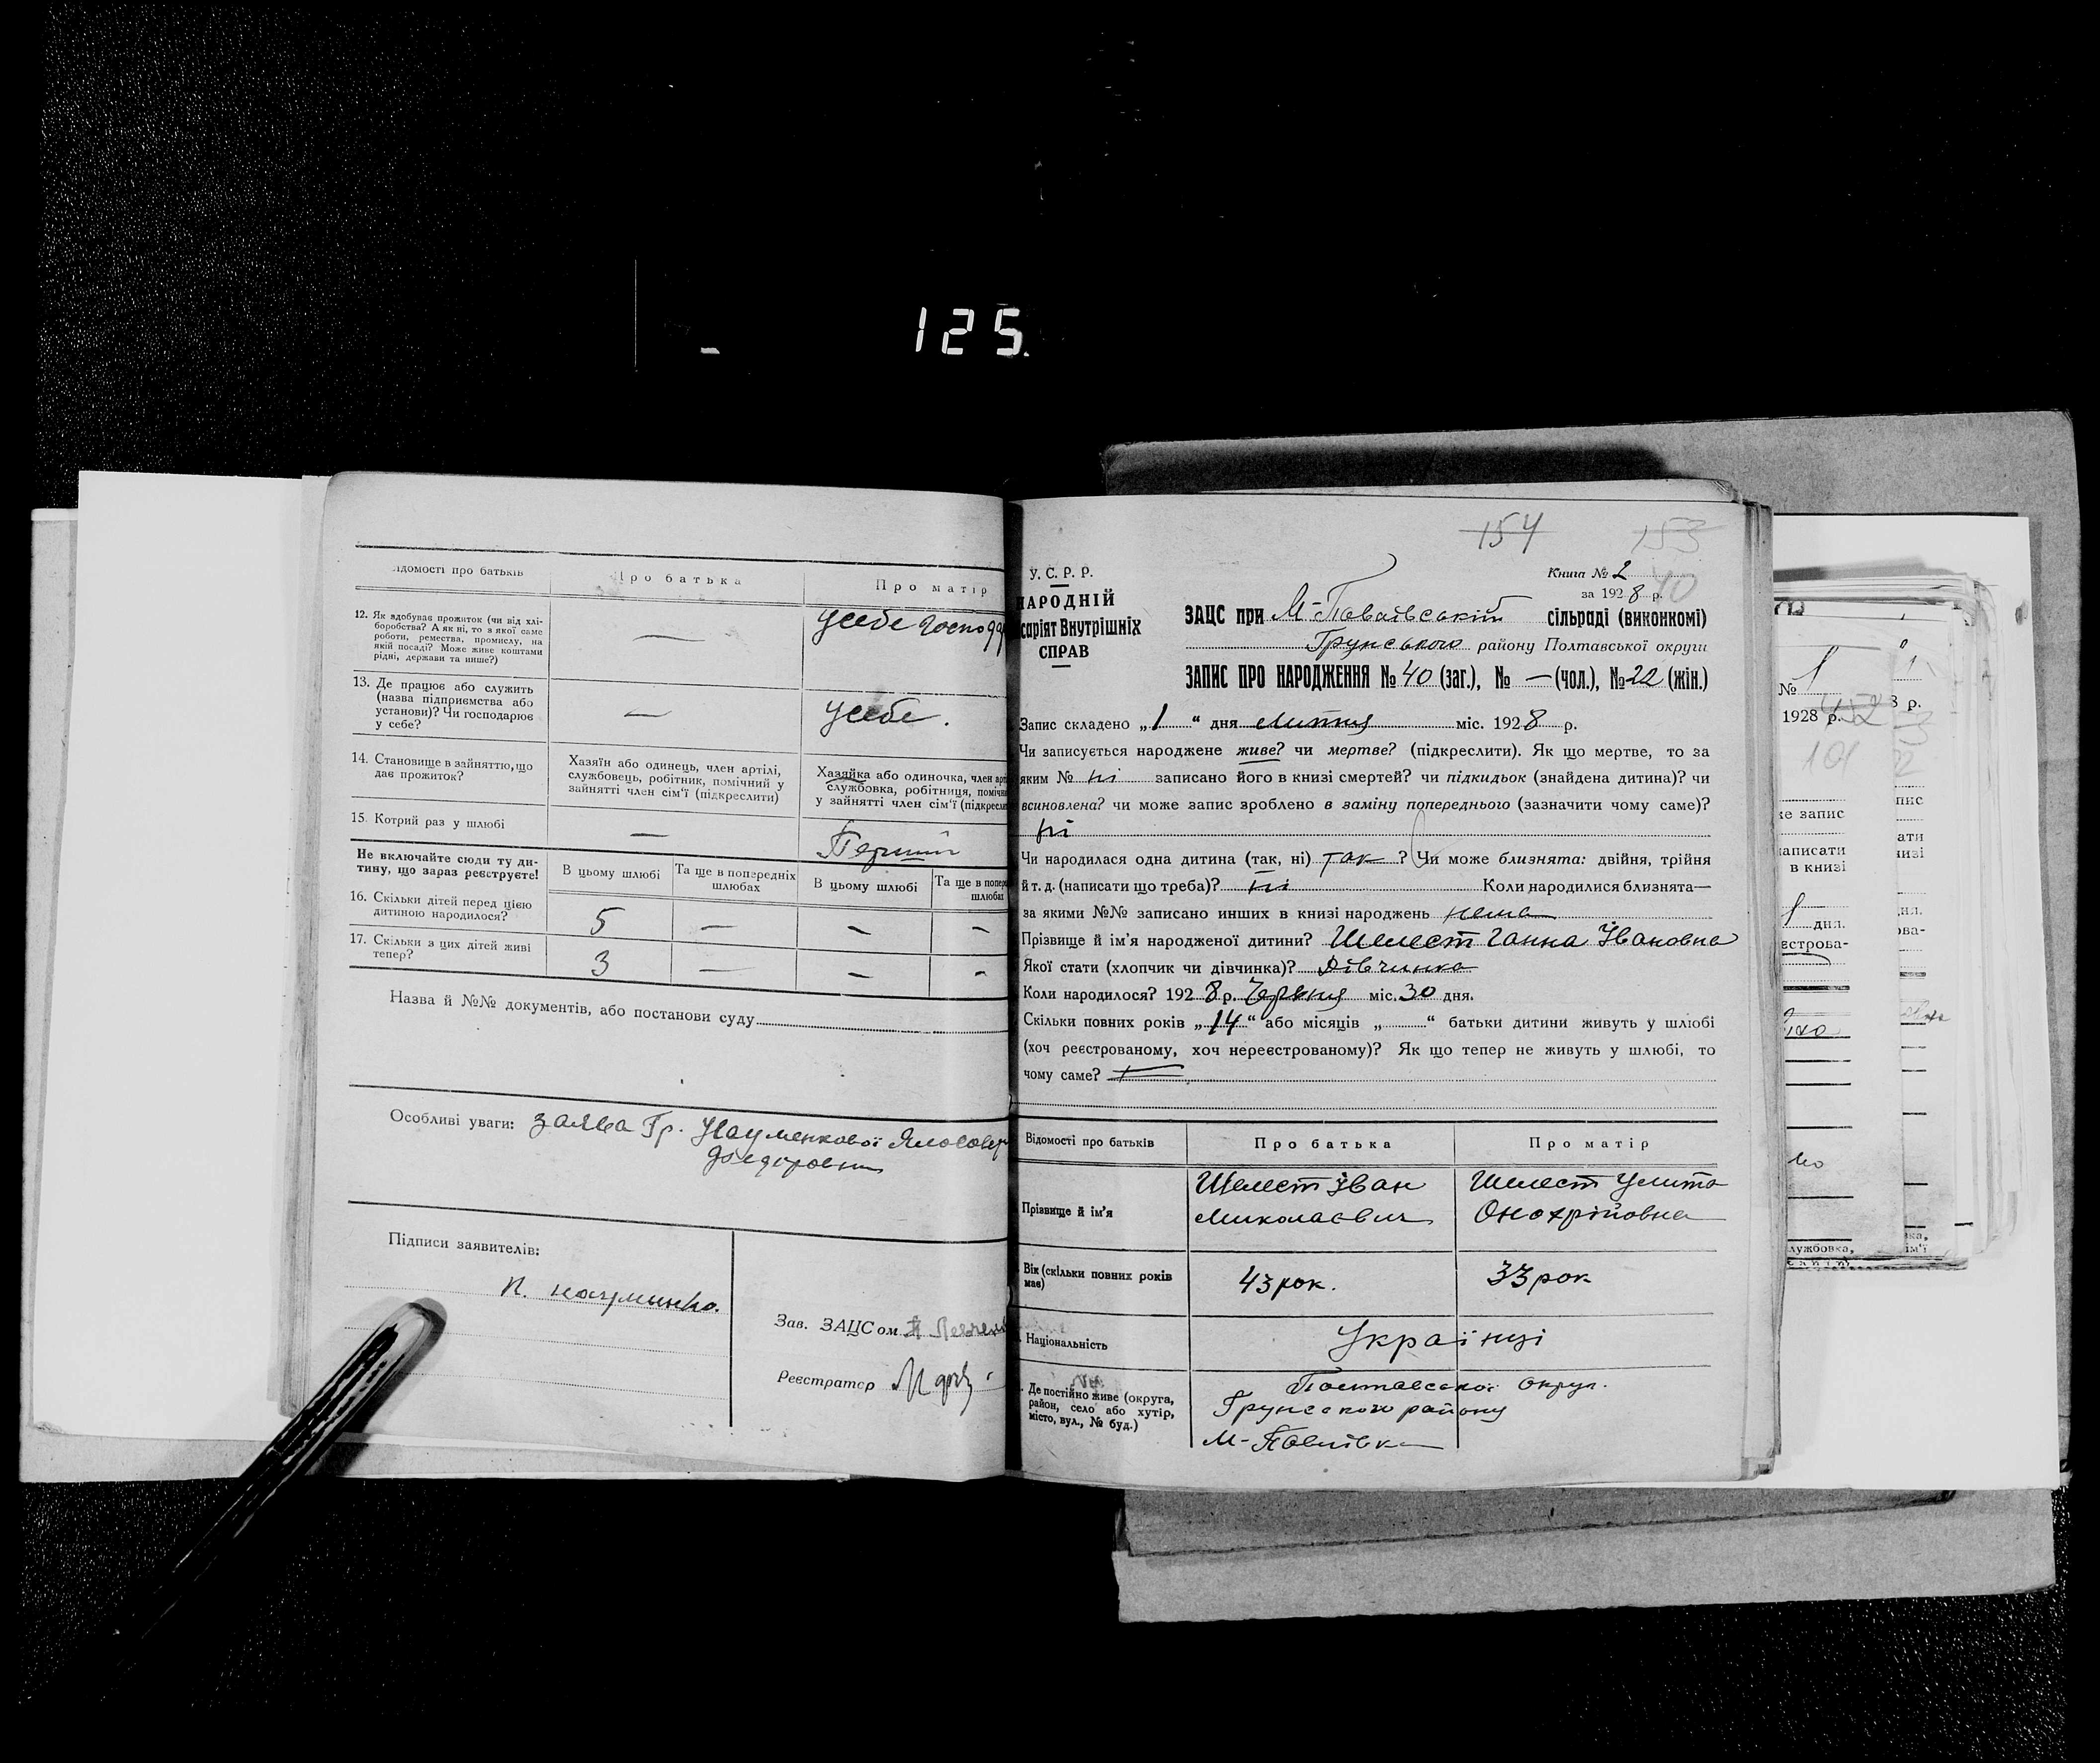 125.
Відомості про батьків
Про батька
Про матір
12. Як здобуває прожиток (чи від хлі-
боробства? А як ні, то з якої саме
роботи, ремества, промислу, на
якій посаді? Може живе коштами
рідні, держави та инше?)
—
усебе господар
13. Де працює або служить
(назва підприємства або
установи)? Чи господарює
у себе?
—
усебе.
14. Становище в зайняттю, що
дає прожиток?
Хазяїн або одинець, член артілі,
службовець, робітник, помічний у
зайнятті член сім'ї (підкреслити)
Хазяйка або одиночка, член арті
службовка, робітниця, помічн
у зайнятті член сім'ї (підкресли
15. Котрий раз у шлюбі
—
Перший
Не включайте сюди ту ди-
тину, що зараз реєструєте!
В цьому шлюбі
Та ще в попередніх
шлюбах
В цьому шлюбі
Та ще в попере
шлюбах
16. Скільки дітей перед цією
дитиною народилося?
5 — — —
17. Скільки з цих дітей живі
тепер?
3 — — —
Назва й №№ документів, або постанови суду
Особливі уваги: заява Гр. Науменкової
Підписи заявителів:
Зав. ЗАЦСом
Реєстратор
154 153
У. С. Р. Р.
НАРОДНІЙ
саріят Внутрішніх
СПРАВ
Книга № 2
за 1928 р. 40
ЗАЦС при М-Павлівській сільраді (виконкомі)
Грунського району Полтавської округи
ЗАПИС ПРО НАРОДЖЕННЯ № 40 (заг.), № — (чол.), № 22 (жін.)
Запис складено „1“ дня липня міс. 1928 р.
Чи записується народжене живе? чи мертве? (підкреслити). Як що мертве, то за
яким № ні записано його в книзі смертей? чи підкидьок (знайдена дитина)? чи
всиновлена? чи може запис зроблено в заміну попереднього (зазначити чому саме)?
ні
Чи народилася одна дитина (так, ні) так ? Чи може близнята: двійня, трійня
й т. д. (написати що треба)? ні Коли народилися близнята—
за якими №№ записано инших в книзі народжень нема
Прізвище й ім'я народженої дитини? Шелест Ганна Івановна
Якої стати (хлопчик чи дівчинка)? Дівчинка
Коли народилося? 1928 р. Червня міс. 30 дня.
Скільки повних років „14“ або місяців „ “ батьки дитини живуть у шлюбі
(хоч реєстрованому, хоч нереєстрованому)? Як що тепер не живуть у шлюбі, то
чому саме?
Відомості про батьків
Про батька
Про матір
Прізвище й ім'я
Шелест Іван
Миколаєвич
Шелест Улита
Онохрійовна
Вік (скільки повних років
має)
43 рок.
33 рок
Національність
Українці
Де постійно живе (округа,
район, село або хутір,
місто, вул., № буд.)
Полтавської округ.
Грунського району
М-Павлівка
№ 1
1928 р.
101